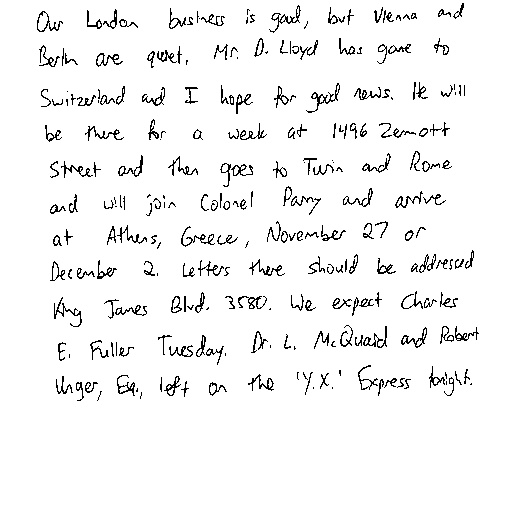 Our London business is good, but Vienna and
Berlin are quiet. Mr. D. Lloyd has gone to
Switzerland and I hope for good news. He will
be there for a week at 1496 Zermott
Street and then goes to Turin and Rome
and will join Colonel Parry and arrive
at Athens, Greece, November 27 or
December 2. Letters there should be addressed
King James Blvd. 3580. We expect Charles
E. Fuller Tuesday. Dr. L. McQuaid and Robert
Unger, Esq., left on the 'Y.X.' Express tonight.